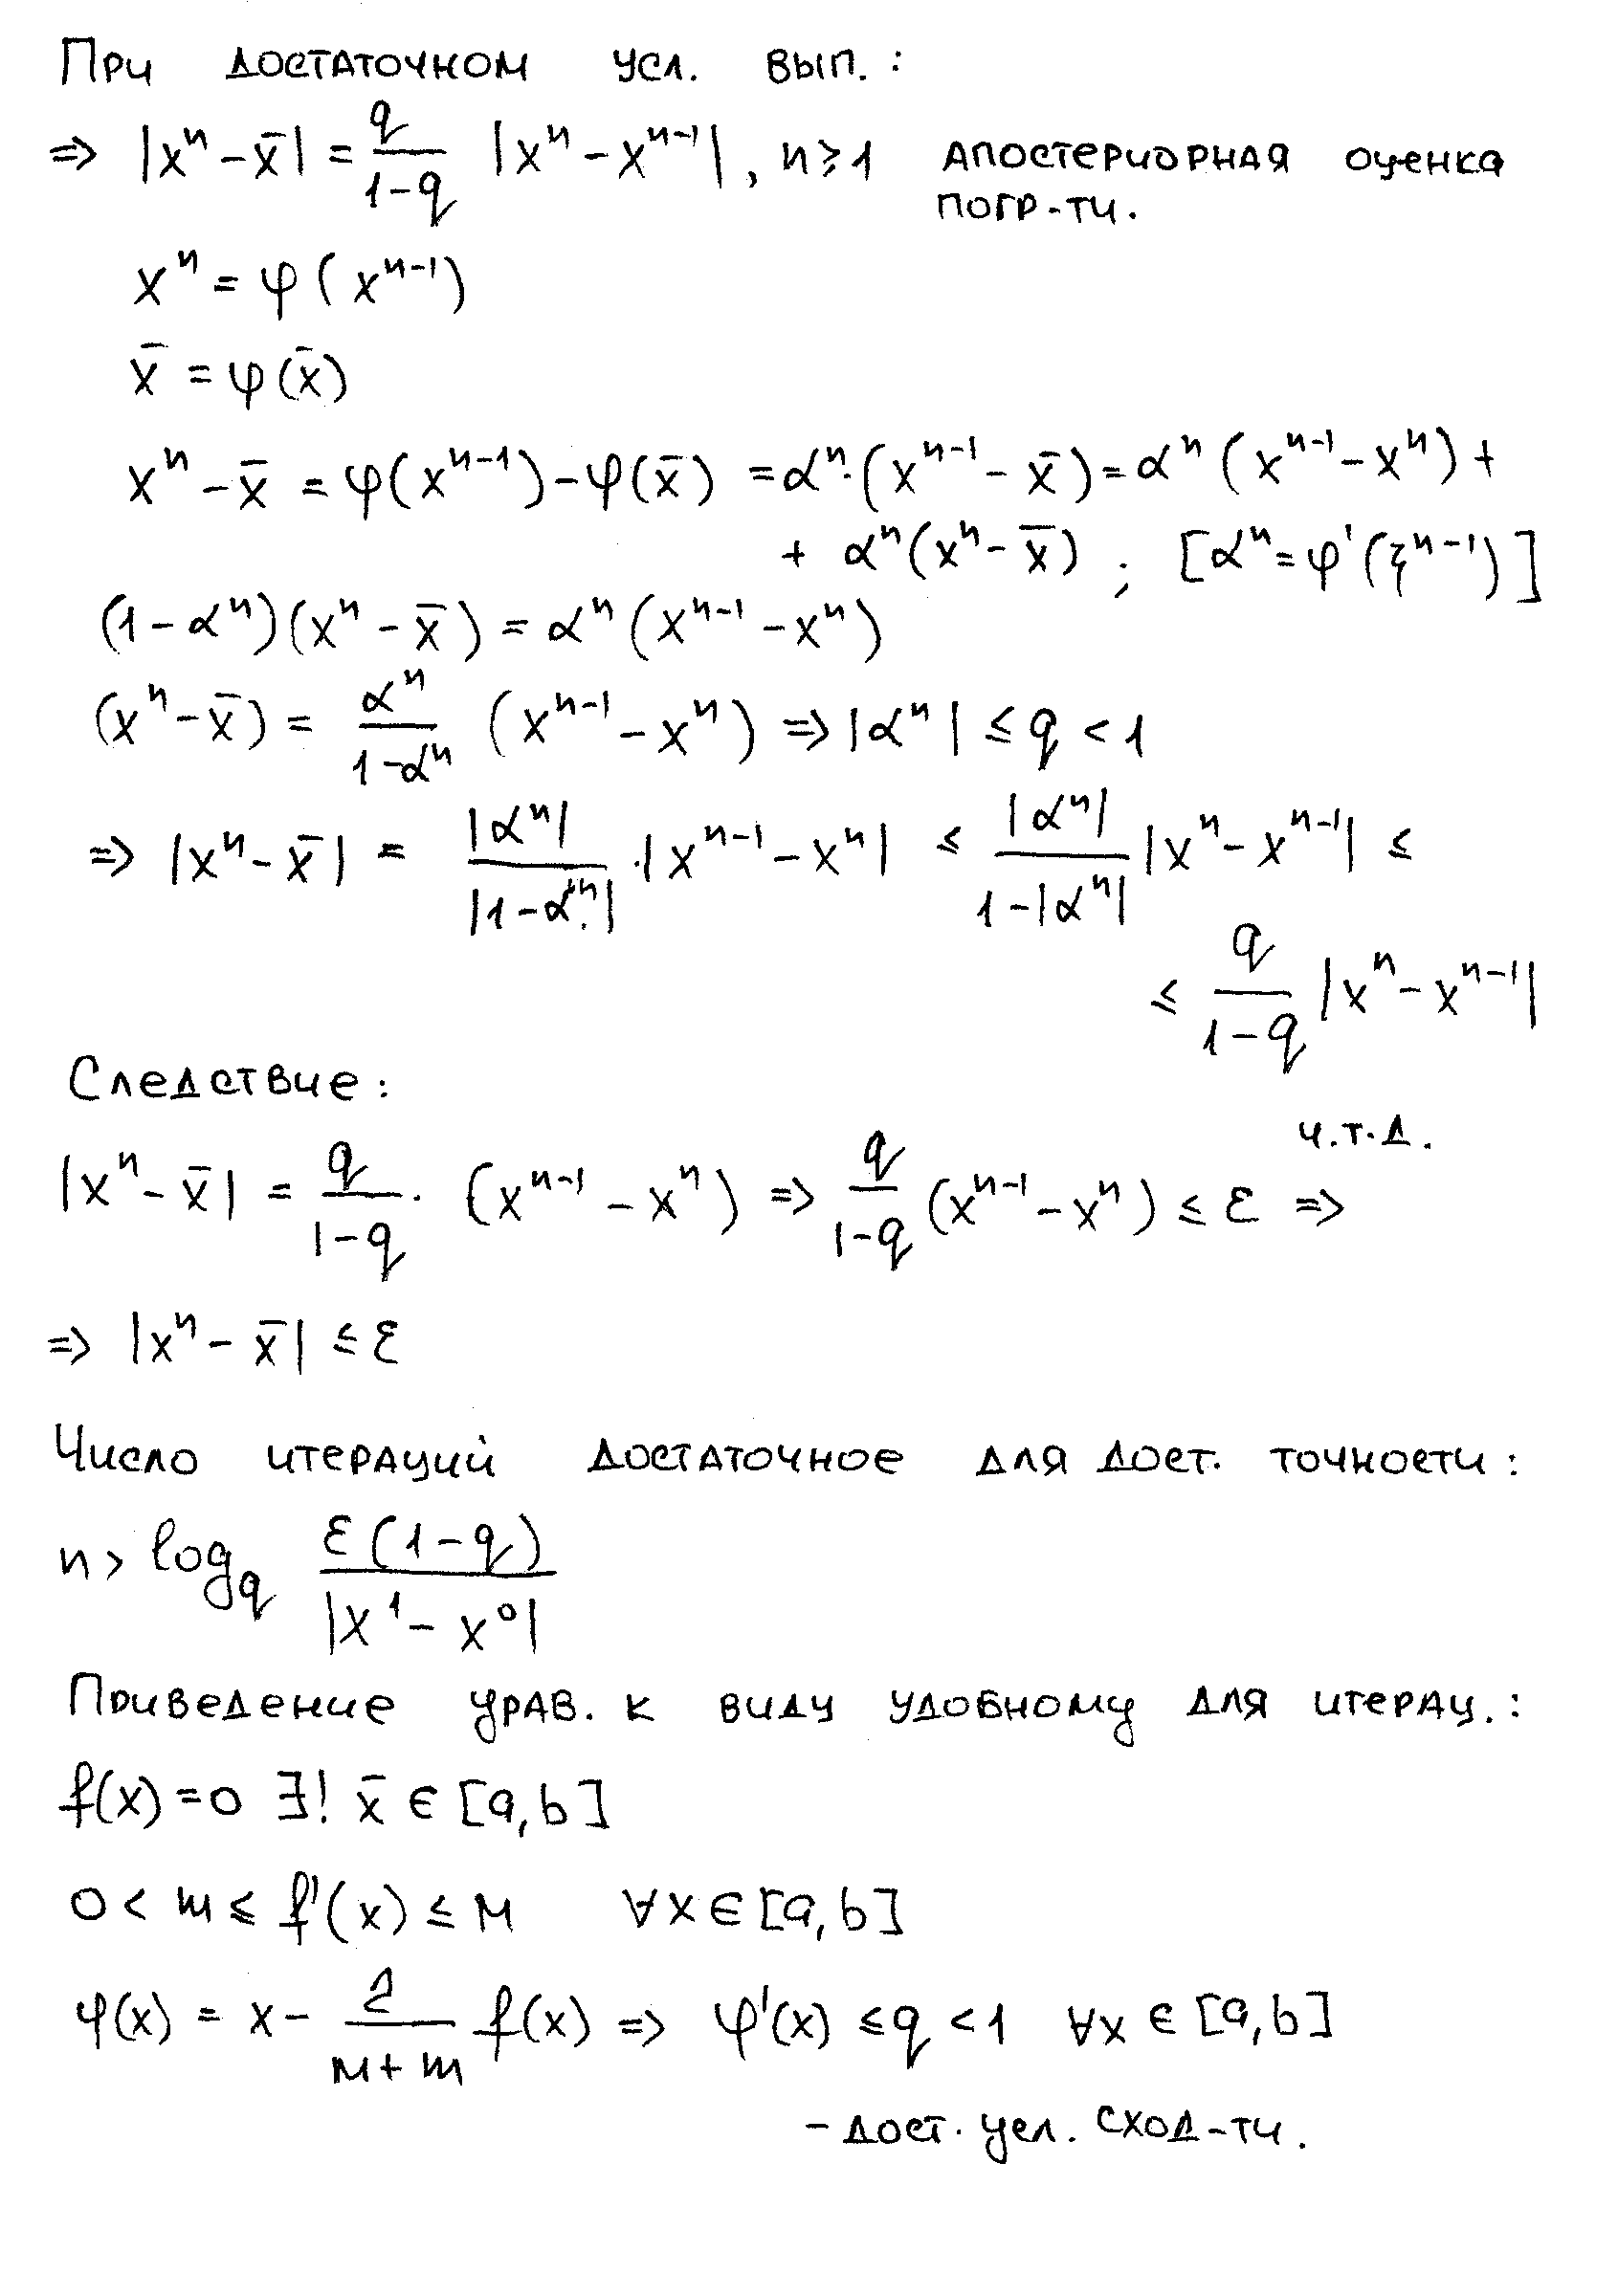 При достаточном усл. вып.:
⇒ |xⁿ − x̄| = q/(1−q) |xⁿ − xⁿ⁻¹|, n ≥ 1 апостериорная оценка
погр-ти.
xⁿ = φ(xⁿ⁻¹)
x̄ = φ(x̄)
xⁿ − x̄ = φ(xⁿ⁻¹) − φ(x̄) = αⁿ·(xⁿ⁻¹ − x̄) = αⁿ(xⁿ⁻¹ − xⁿ) +
+ αⁿ(xⁿ − x̄) ; [αⁿ = φ'(ξⁿ⁻¹)]
(1 − αⁿ)(xⁿ − x̄) = αⁿ(xⁿ⁻¹ − xⁿ)
(xⁿ − x̄) = αⁿ/(1−αⁿ) (xⁿ⁻¹ − xⁿ) ⇒ |αⁿ| ≤ q < 1
⇒ |xⁿ − x̄| = |αⁿ|/|1−αⁿ| ·|xⁿ⁻¹ − xⁿ| ≤ |αⁿ|/(1−|αⁿ|) |xⁿ − xⁿ⁻¹| ≤
≤ q/(1−q) |xⁿ − xⁿ⁻¹|
Следствие:
ч.т.д.
|xⁿ − x̄| = q/(1−q) · (xⁿ⁻¹ − xⁿ) ⇒ q/(1−q) (xⁿ⁻¹ − xⁿ) ≤ ε ⇒
⇒ |xⁿ − x̄| ≤ ε
Число итераций достаточное для дост. точности:
n > log_q ε(1−q)/|x¹ − x⁰|
Приведение урав. к виду удобному для итерац.:
f(x) = 0 ∃! x̄ ∈ [a, b]
0 < m ≤ f'(x) ≤ M ∀x ∈ [a, b]
φ(x) = x − 2/(M+m) f(x) ⇒ φ'(x) ≤ q < 1 ∀x ∈ [a, b]
− дост. усл. сход-ти.